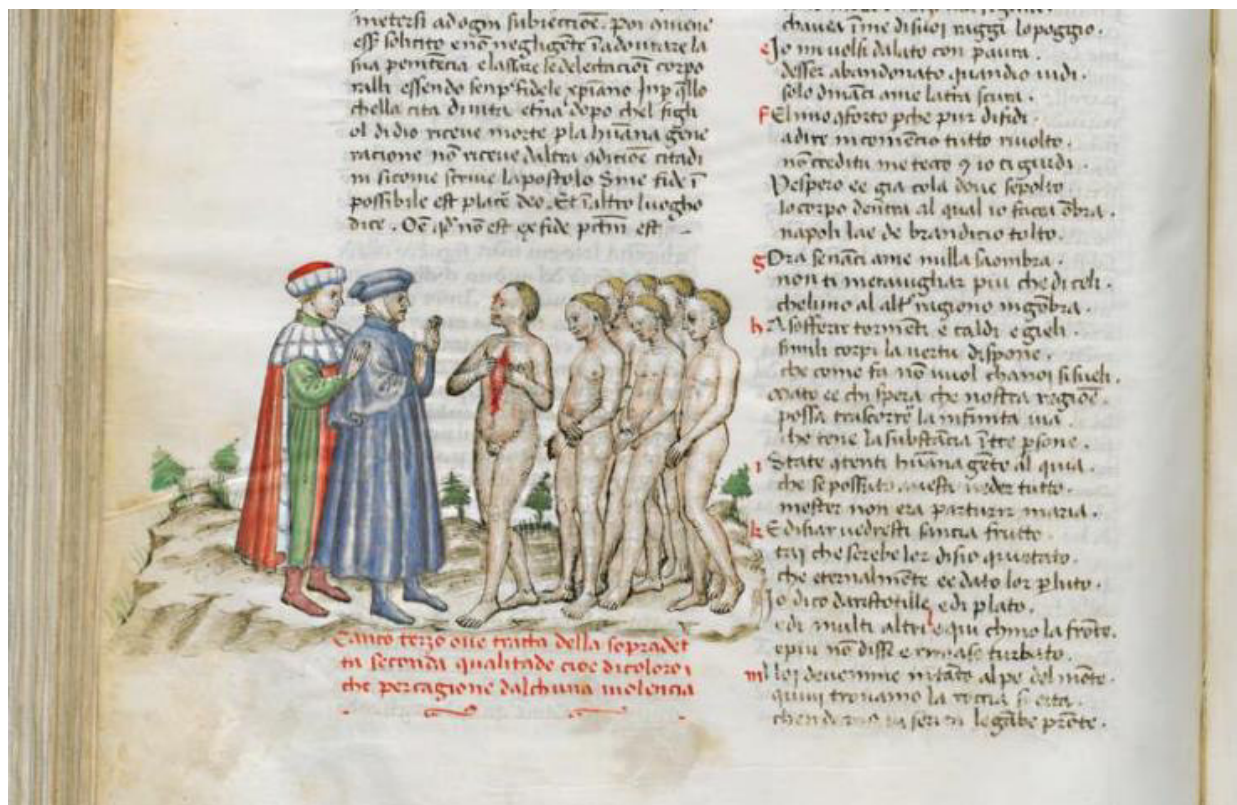 mettersi ad ogni subiectiōe. Poi ↄuiene
ess̄ solicito e nō negligēte ī adoutare la
sua penitēcia e lassare le delectacioī corpo
ralli essendo senp̄ fidele xp̄iano Jnp̄ q̄llo
chella cita diuita etn̄a depo chel figli
ol di dio riceue morte p̱ la hūana gene
racione nō riceue daltra ↄdiciōe citadi
ni sicome scriue lapostolo Sine fide ī
possibile est placē deo. Et ī altro luogho
dice. Oē qd̄ nō est ex fide pctm̄ est
Canto terzo oue tratta della sopradet
ta seconda qualitade cioe di coloro
che per cagione dalchuna violencia
chauea ī me di suoi raggi lopoggio.
Jo mi uolsi dalato con paura.
desser abandonato quandio uidi.
solo dināci ame latra scura.
El mio ↄforto p̱che pur difidi.
adire mi comēcio tutto riuolto.
nō credi tu me teco ꝯ io ti guidi.
Vespero ee gia cola doue sepolto
lo corpo dentra al qual io facea ōbra.
napoli lae de brandicio tolto.
Ora senāci ame nulla saombra.
non ti merauigliar piu che di celi.
cheluno al alt̄ ragiono ingōbra.
A sofferir tormēti e caldi e gieli.
simili corpi la uertu dispone.
che come fa nō uuol chanoi si sueli.
Mato ee chi spera che nostra ragiōe.
possa trascorre la infinita uia
che tene la substācia ī tre p̱sone.
State ↄtenti hūana gēte al quia.
che se possuto auessi ueder tutto.
mester non era parturir maria.
E disiar uedesti sancia frutto
tai che serebe lor disio quietato.
che eternalmēte ee dato lor p̱ luto.
Jo dico daristotille e di plato.
e di multi altri e qui chino la frōte.
e piu nō disse e rimase turbato.
Noi deuenime intāto al pe del mōte.
quiui trouamo la roccia si erta.